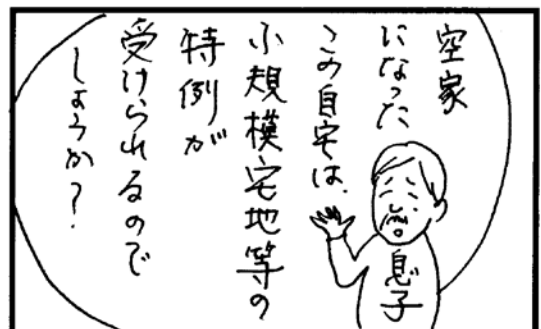 空家
になった
この自宅は、
小規模宅地等の
特例が
受けられるので
しょうか?
息子